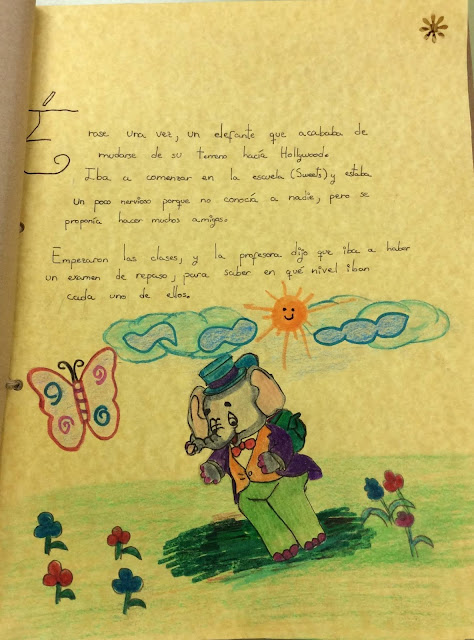 Érase una vez, un elefante que acababa de
mudarse de su terreno hacía Hollywood.
Iba a comenzar en la escuela (Sweets) y estaba
un poco nervioso porque no conocía a nadie, pero se
proponía hacer muchos amigos.
Empezaron las clases, y la profesora dijo que iba a haber
un examen de repaso, para saber en qué nivel iban
cada uno de ellos.